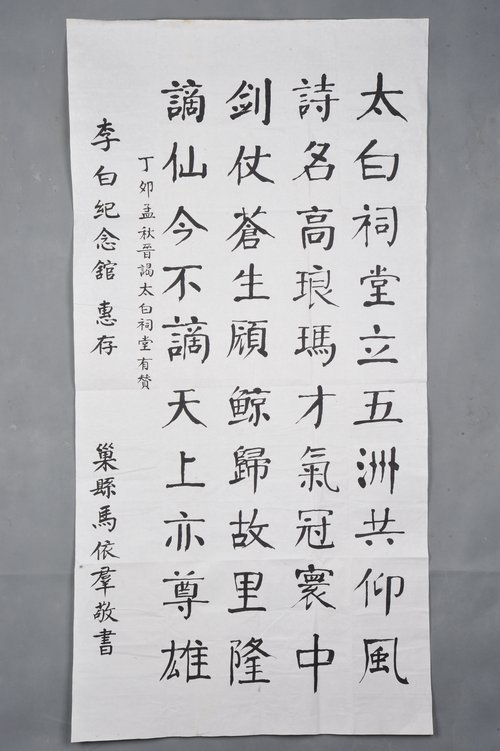 太白祠堂立五洲共仰風
詩名高琅瑪才氣冠寰中
剑仗蒼生頋鲸歸故里隆
謫仙今不謫天上亦尊雄
丁卯孟秋晉謁太白祠堂有贊
李白紀念舘 惠存
巢縣馬依羣敬書